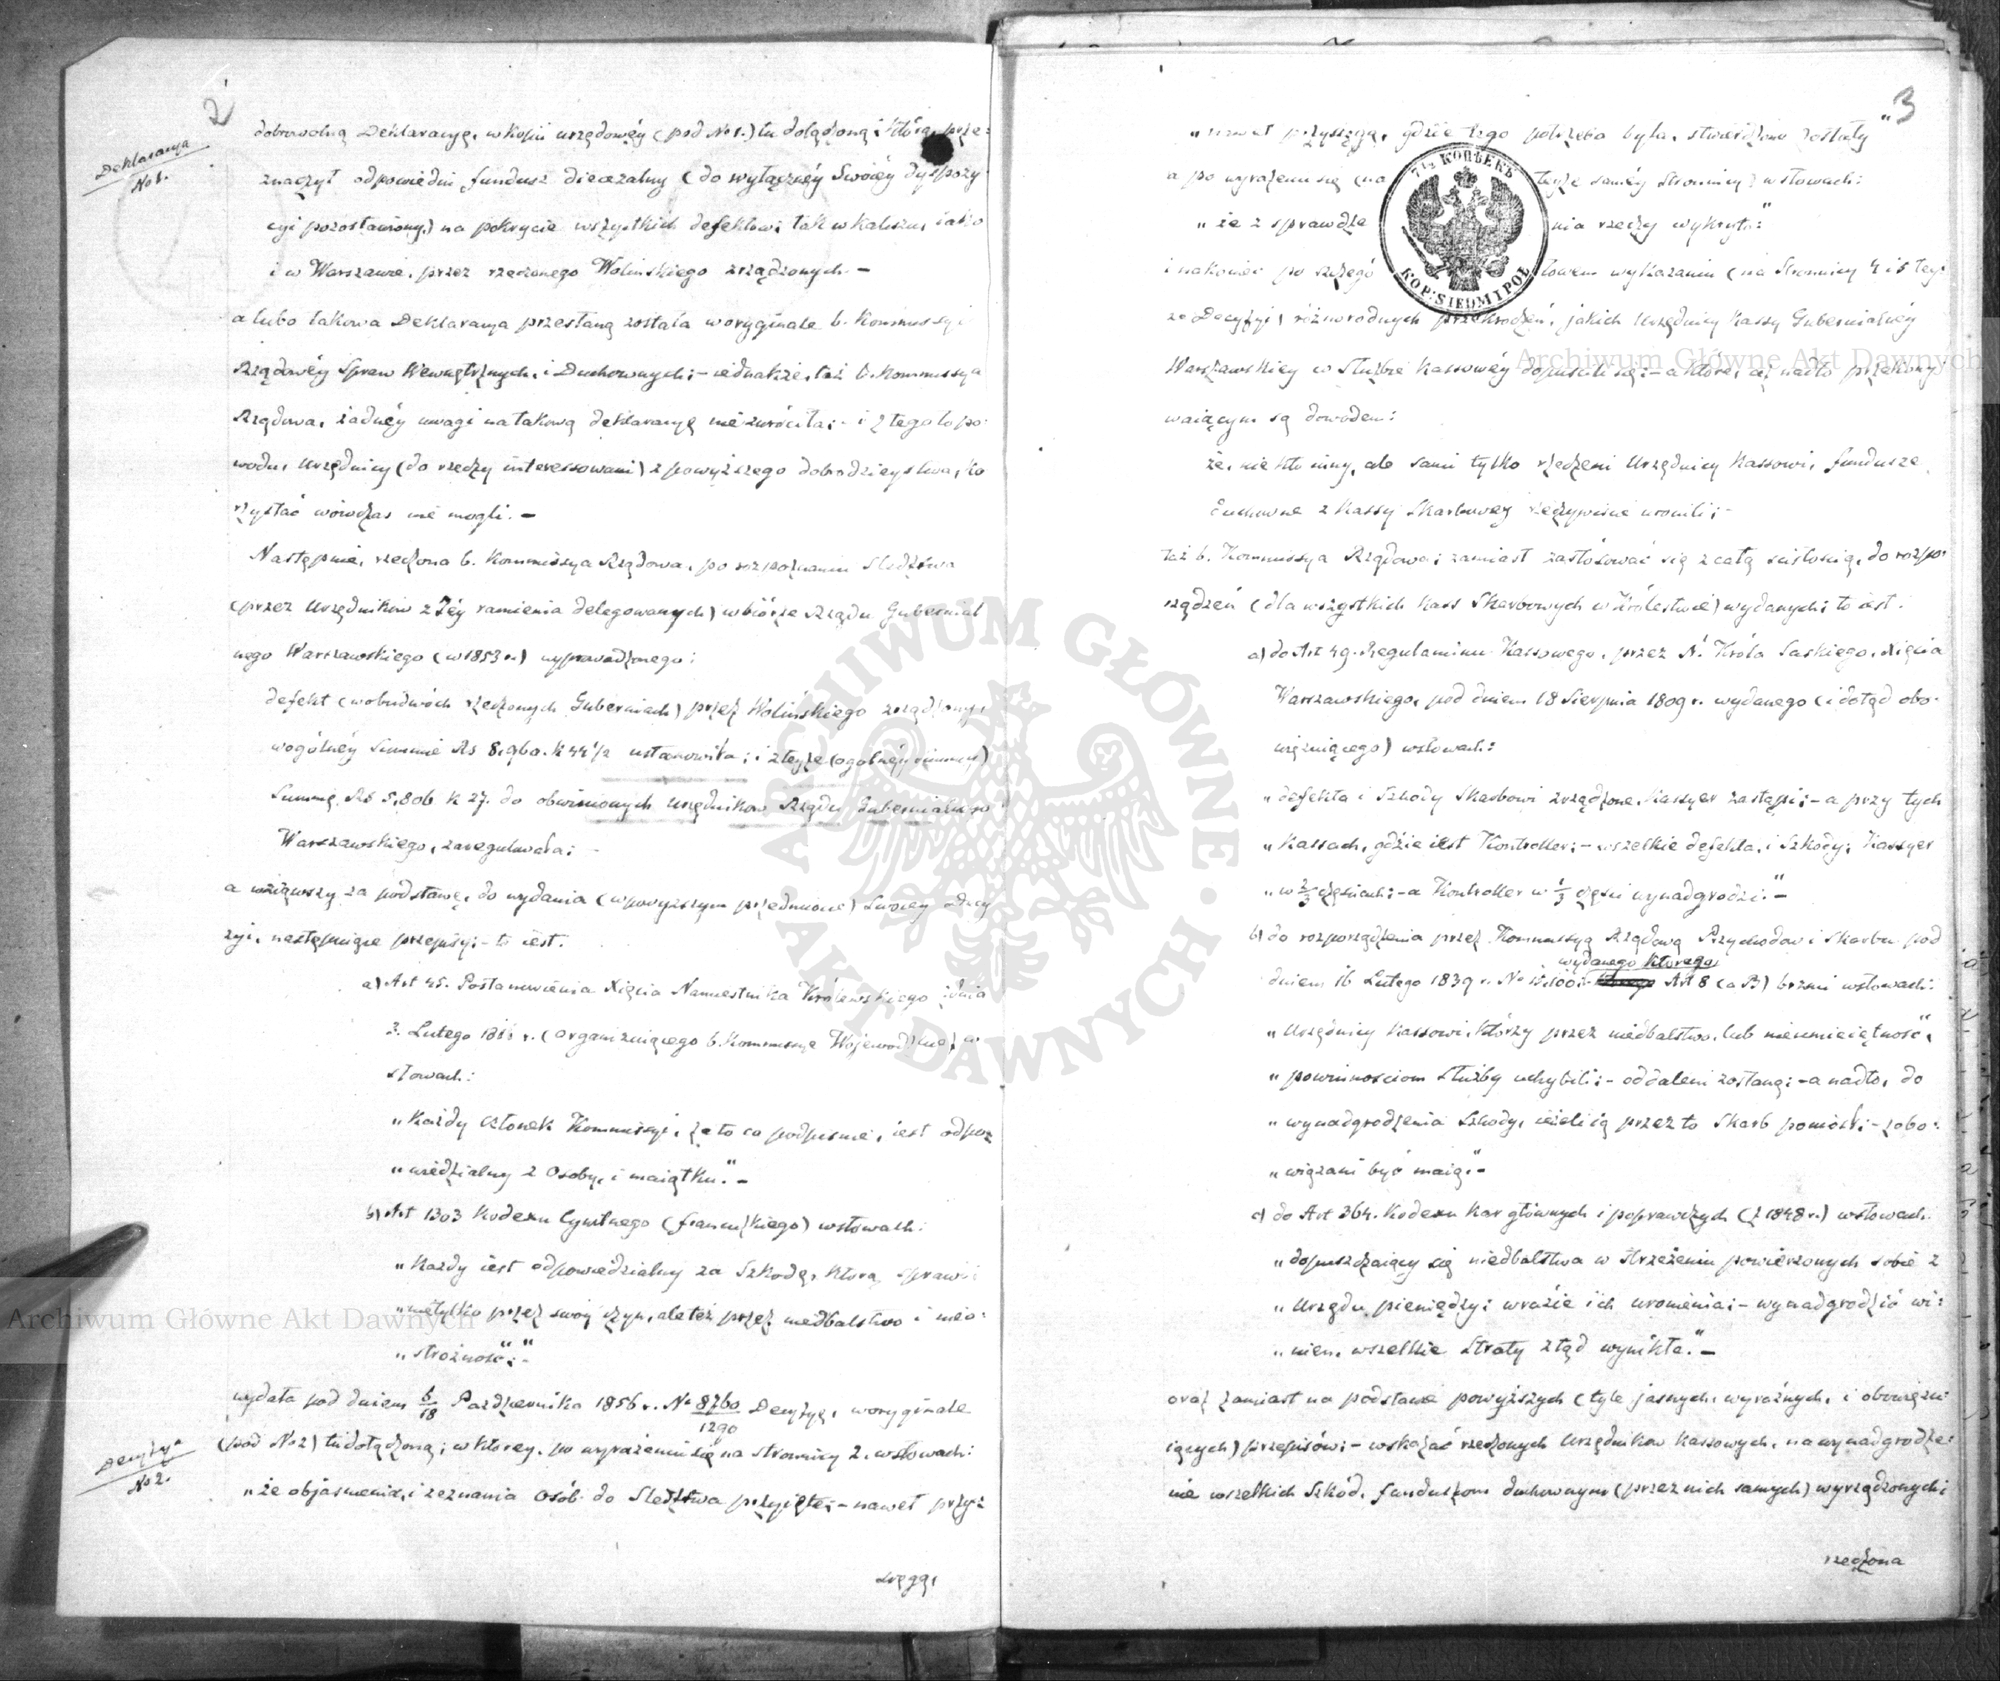 2
Deklaracya
No 1.
dobrowolną Deklaracyę, w kopii urzędowéy (pod No 1.) tu dołączoną; którą, prze=
znaczył odpowiedni fundusz diecezalny (do wyłącznéy Swoiéy dyspozy
cyi pozostawiony) na pokrycie wszystkich defektów; tak w Kaliszu, iako
i w Warszawie, przez rzeczonego Wolińskiego zrządzonych. —
a lubo takowa Deklaracya przesłaną została w oryginale b. Kommissyi
Rządowéy Spraw Wewnętrznych, i Duchownych; – iednakże, taż b. Kommissya
Rządowa, żadnéy uwagi na takową deklaracyę nie zwróciła; – i z tego to po=
wodu, Urzędnicy (do rzeczy interessowani) z powyższego dobrodzieystwa, ko
rzystać wówczas nie mogli. —
Następnie, rzeczona b. Kommissya Rządowa, po rozpoznaniu Śledztwa
(przez Urzędników z Jéy ramienia delegowanych) w biórze Rządu Gubernial
nego Warszawskiego (w 1853 r.) wyprowadzonego;
defekt (w obudwóch rzeczonych Guberniach) przez Wolińskiego zrządzony,
w ogólnéy Summie Rs 8,960. k 44 1/2 ustanowiła; i z téyże (ogólnéy Summy)
Summę Rs 5,806 k 27. do obwinionych Urzędników Rządu Gubernialnego
Warszawskiego, zaregulowała; –
a wziąwszy za podstawę, do wydania (w powyższym przedmiocie) Swoiéy decy
zyi, następuiące przepisy; – to iest.
a) Art 45. Postanowienia Xięcia Namiestnika Królewskiego z dnia
3. Lutego 1816 r. (organizuiącego b. Kommissye Wojewódzkie) w
słowach:
„Każdy członek Kommissyi, za to co podpisuie, iest odpo
„wiedzialny z Osoby, i maiątku.“ —
b) Art 1383 Kodexu Cywilnego (francuzkiego) w słowach:
„Każdy iest odpowiedzialny za Szkodę, którą sprawił
„nietylko przez swóy czyn, ale też przez niedbalstwo i nieo=
„strożność;“ –
wydała pod dniem 6/18 Października 1856 r. No 8760/1290 Decyzyę, w oryginale
Decyzya
No 2.
(pod No 2) tu dołączoną; w któréy, po wyrażeniu się na stronnicy 2. w słowach:
„że objaśnienia, i zeznania Osób do Śledztwa przyięte; – nawet przy=
sięgą,
3
„nawet przysięgą, gdzie tego potrzeba była, stwierdzone zostały“
a po wyrażeniu się (na téyże saméy Stronnicy) w słowach:
„że z sprawdze nia rzeczy wykryto:“
7½ КОПѢЕКЪ
KOP: SIEDM I PÓŁ
i nakoniec po szczegó łowem wykazaniu (na Stronnicy 4 i 5 tey=
że Decyzyi) różnorodnych przekroczeń, jakich Urzędnicy Kassy Gubernialnéy
Warszawskiey w Służbie Kassowéy dopuścili się; – a które, aż nadto przekony
waiącym są dowodem:
że, nie kto inny, ale sami tylko rzeczeni Urzędnicy Kassowi, fundusze
Duchowne z Kassy Skarbowéy rzeczywiście uronili; –
taż b. Kommissya Rządowa; zamiast zastósować się z całą ścisłością, do rozpo=
rządzeń (dla wszystkich Kass Skarbowych w Królestwie) wydanych; to iest.
a) do Art 49. Regulaminu Kassowego, przez N. Króla Saskiego, Xięcia
Warszawskiego, pod dniem 18 Sierpnia 1809 r. wydanego (i dotąd obo=
więzuiącego) w słowach:
„defekta i Szkody Skarbowi zrządzone, Kassyer zastąpi; – a przy tych
„Kassach, gdzie iest Kontroller; – wszelkie defekta, i Szkody; Kassyer
„w 2/3 częściach; – a Kontroller w 1/3 części wynadgrodzi.“ —
b) do rozporządzenia przez Kommissyą Rządową Przychodów i Skarbu pod
wydanego którego
dniem 16 Lutego 1839 r. No Art 8 (a B) brzmi w słowach:
„Urzędnicy Kassowi, którzy przez niedbalstwo, lub nieumieiętność,
„powinnościom służby uchybili; – oddaleni zostaną; – a nadto, do
„wynadgrodzenia Szkody, ieżeli ią przez to Skarb poniósł; – zobo=
„wiązani być maią.“ –
c) do Art 364. Kodexu Kar głównych i poprawczych (z 1848 r.) w słowach:
„dopuszczaiący się niedbalstwa w strzeżeniu powierzonych sobie z
„Urzędu pieniędzy; w razie ich uronienia; – wynadgrodzić wi=
„nien, wszelkie Straty ztąd wynikłe.“ —
oraz zamiast na podstawie powyższych (tyle jasnych, wyraźnych, i obowięzu=
iących) przepisów; – wskazać rzeczonych Urzędników Kassowych, na wynadgrodze=
nie wszelkich Szkód, funduszom duchownym (przez nich samych) wyrządzonych;
rzeczona
Archiwum Główne Akt Dawnych
Archiwum Główne Akt Dawnych
ARCHIWUM GŁÓWNE · AKT DAWNYCH ·